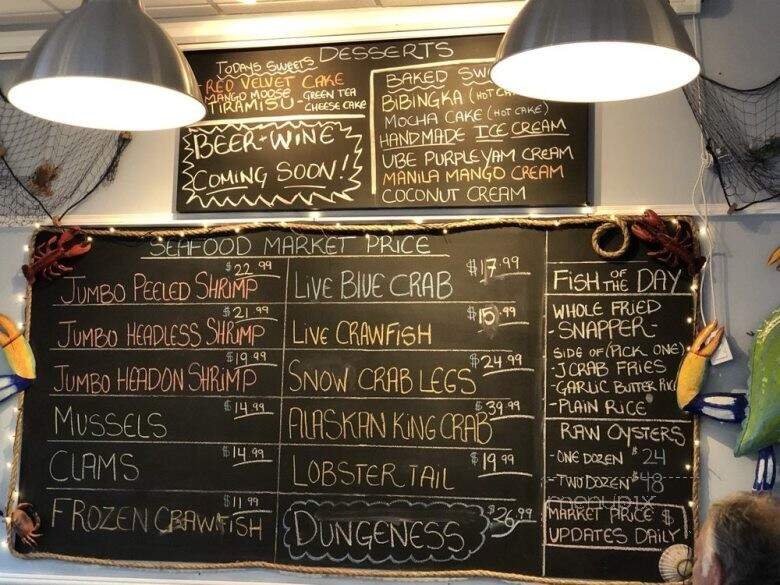 TODAYS SWEETS DESSERTS
RED VELVET CAKE
MANGO MOOSE - GREEN TEA
TIRAMISU - CHEESE CAKE
BEER-WINE
COMING SOON!!
BAKED
BIBINGKA (HOT
MOCHA CAKE (HOT CAKE)
HANDMADE ICE CREAM
UBE PURPLE YAM CREAM
MANILA MANGO CREAM
COCONUT CREAM
SEAFOOD MARKET PRICE
JUMBO PEELED SHRIMP $22.99
JUMBO HEADLESS SHRIMP $21.99
JUMBO HEADON SHRIMP $19.99
MUSSELS $14.99
CLAMS $14.99
FROZEN CRAWFISH $11.99
LIVE BLUE CRAB $17.99
LIVE CRAWFISH $15.99
SNOW CRAB LEGS $24.99
ALASKAN KING CRAB $39.99
LOBSTER TAIL $19.99
DUNGENESS $26.99
FISH OF THE DAY
WHOLE FRIED
-SNAPPER-
SIDE OF (PICK ONE)
-JCRAB FRIES
-GARLIC BUTTER
-PLAIN RICE
RAW OYSTERS
-ONE DOZEN $24
-TWO DOZEN $48
menupix
MARKET PRICE $
UPDATES DAILY